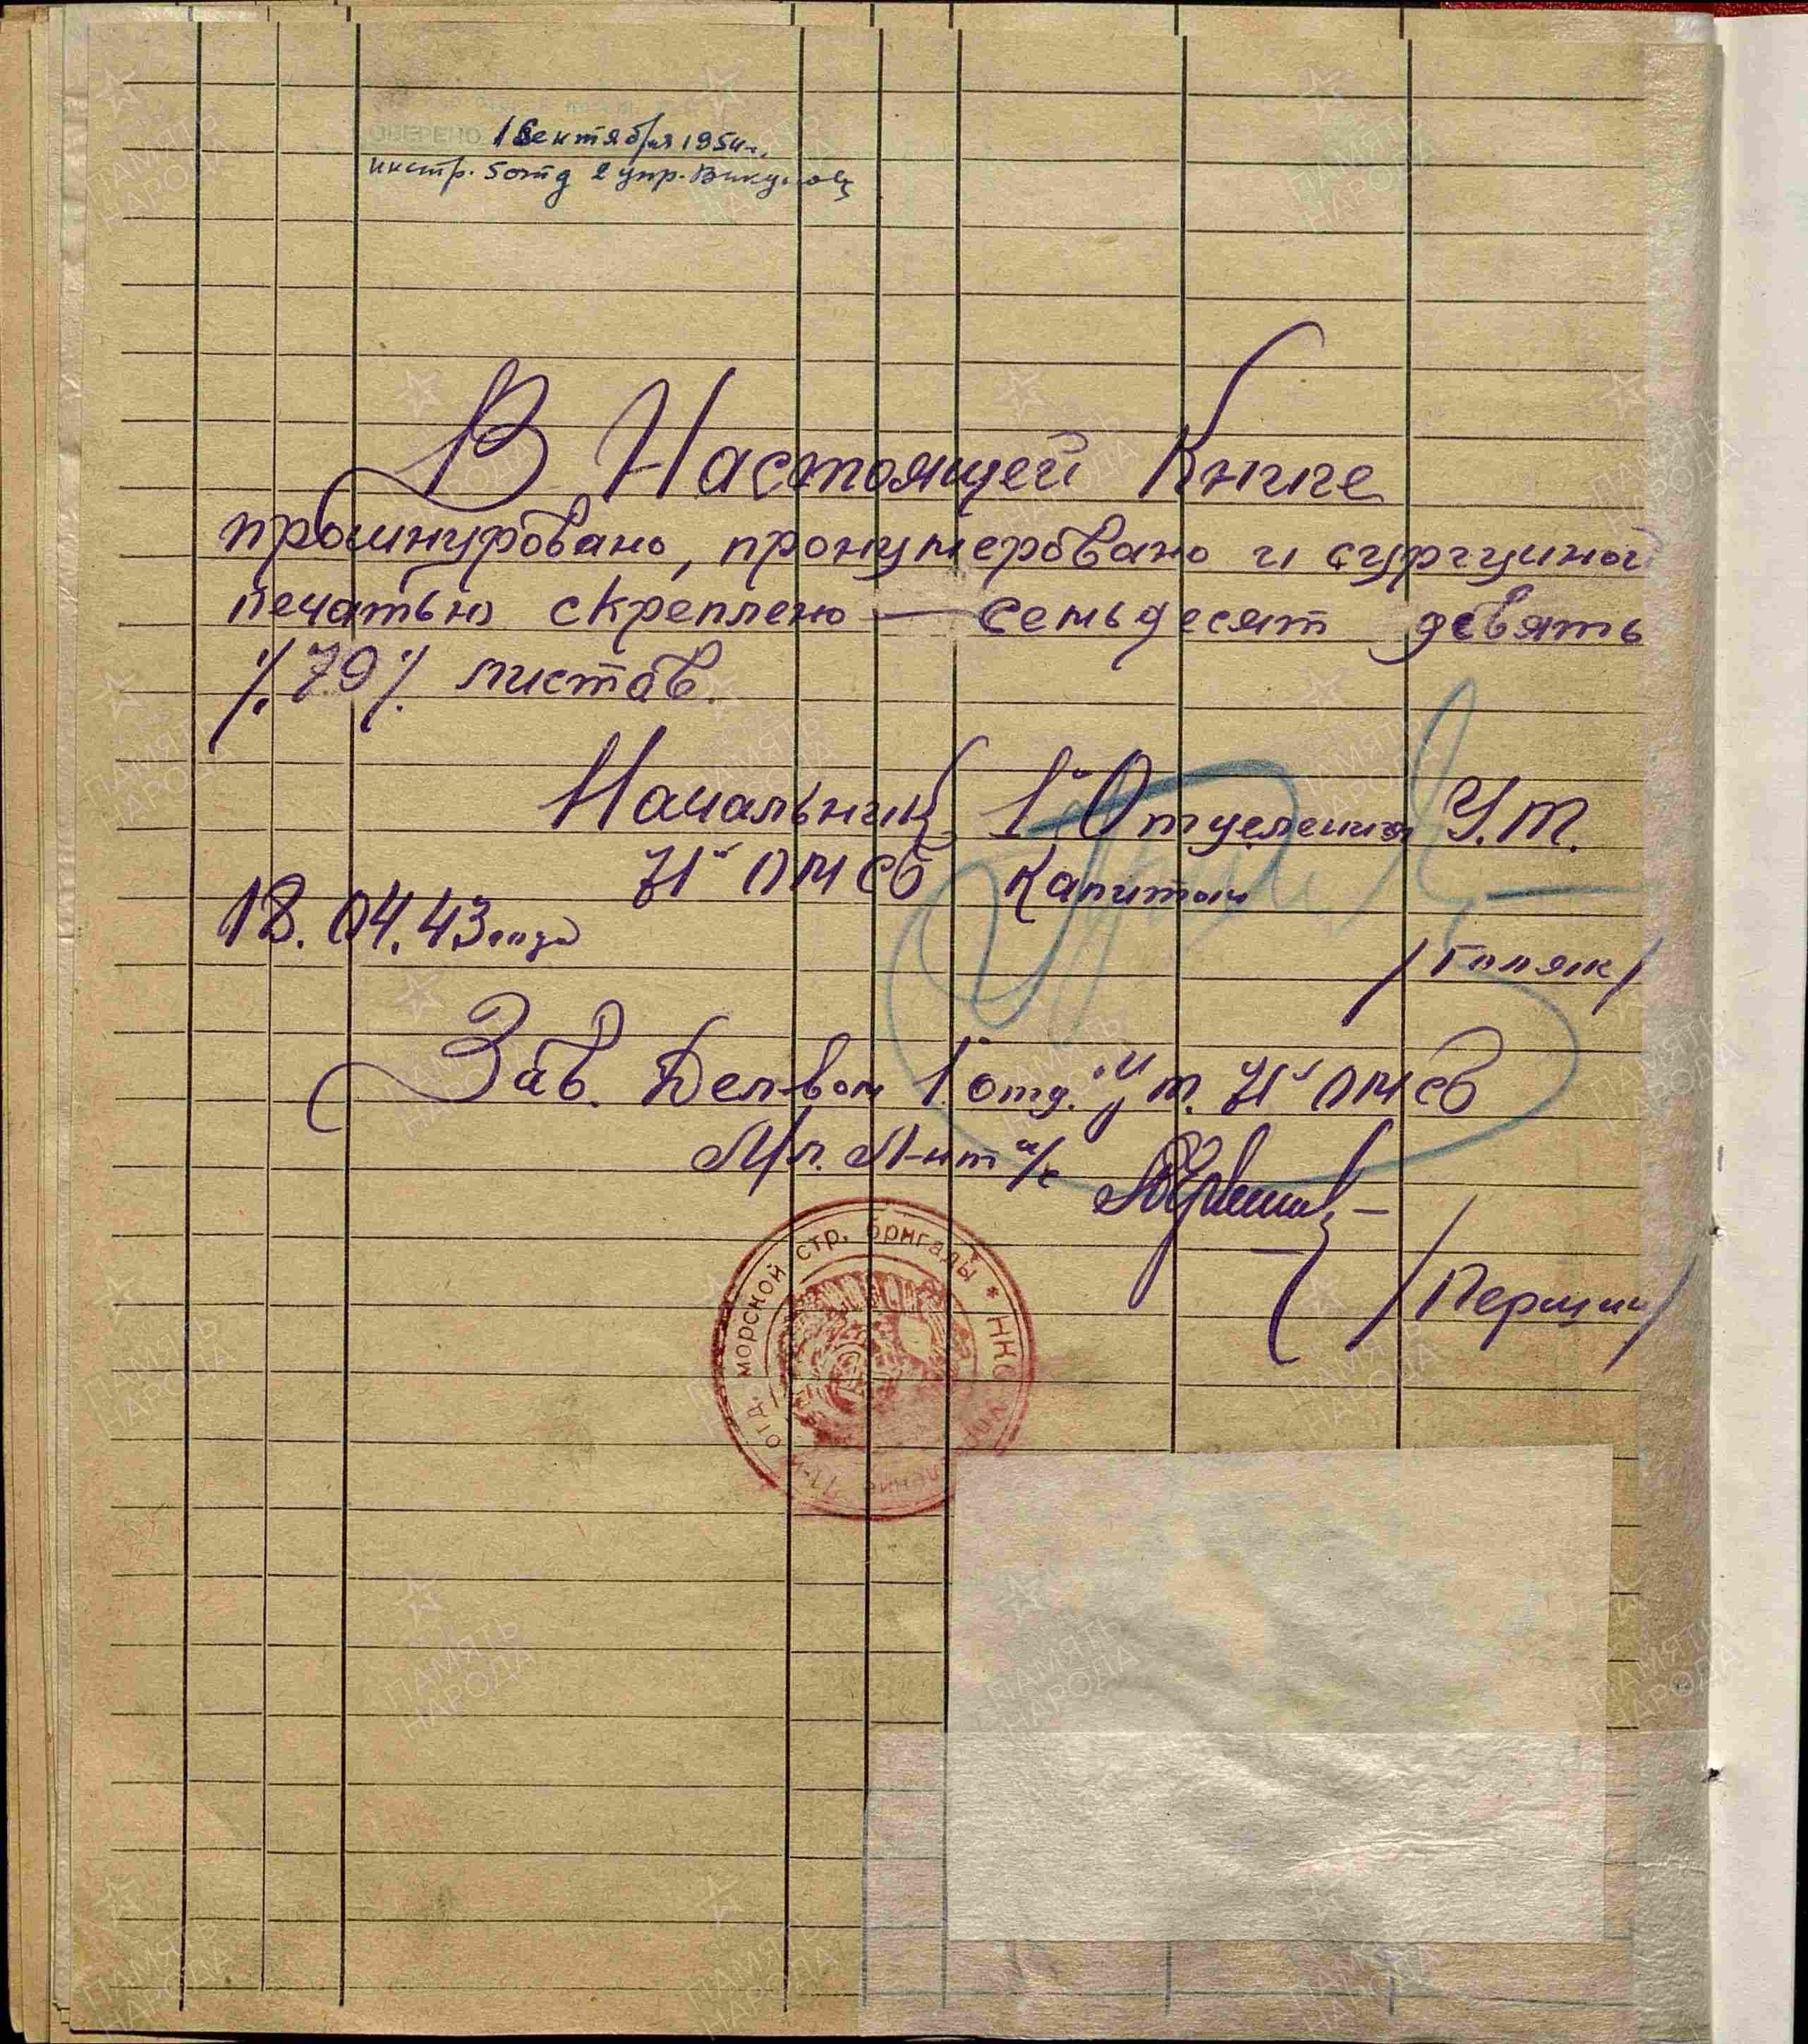 ОВЕРЕНО 1 Сентября 1954 г.
инстр. 5 отд 2 упр.
В Настоящей Книге
прошнуровано, пронумеровано и сургучной
печатью скреплено — семьдесят девять
/.79/. листов.
Начальник 1го Отделения У.Т.
71й ОМСБ Капитан
18.04.43 года
/Голяк/
Зав. Дел-вом 1 отд. У.Т. 71й ОМСБ
Мл. Л-нт а/с
/Першин/
71-й отд. морской стр. бригады * НКО управление
ПАМЯТЬ
НАРОДА